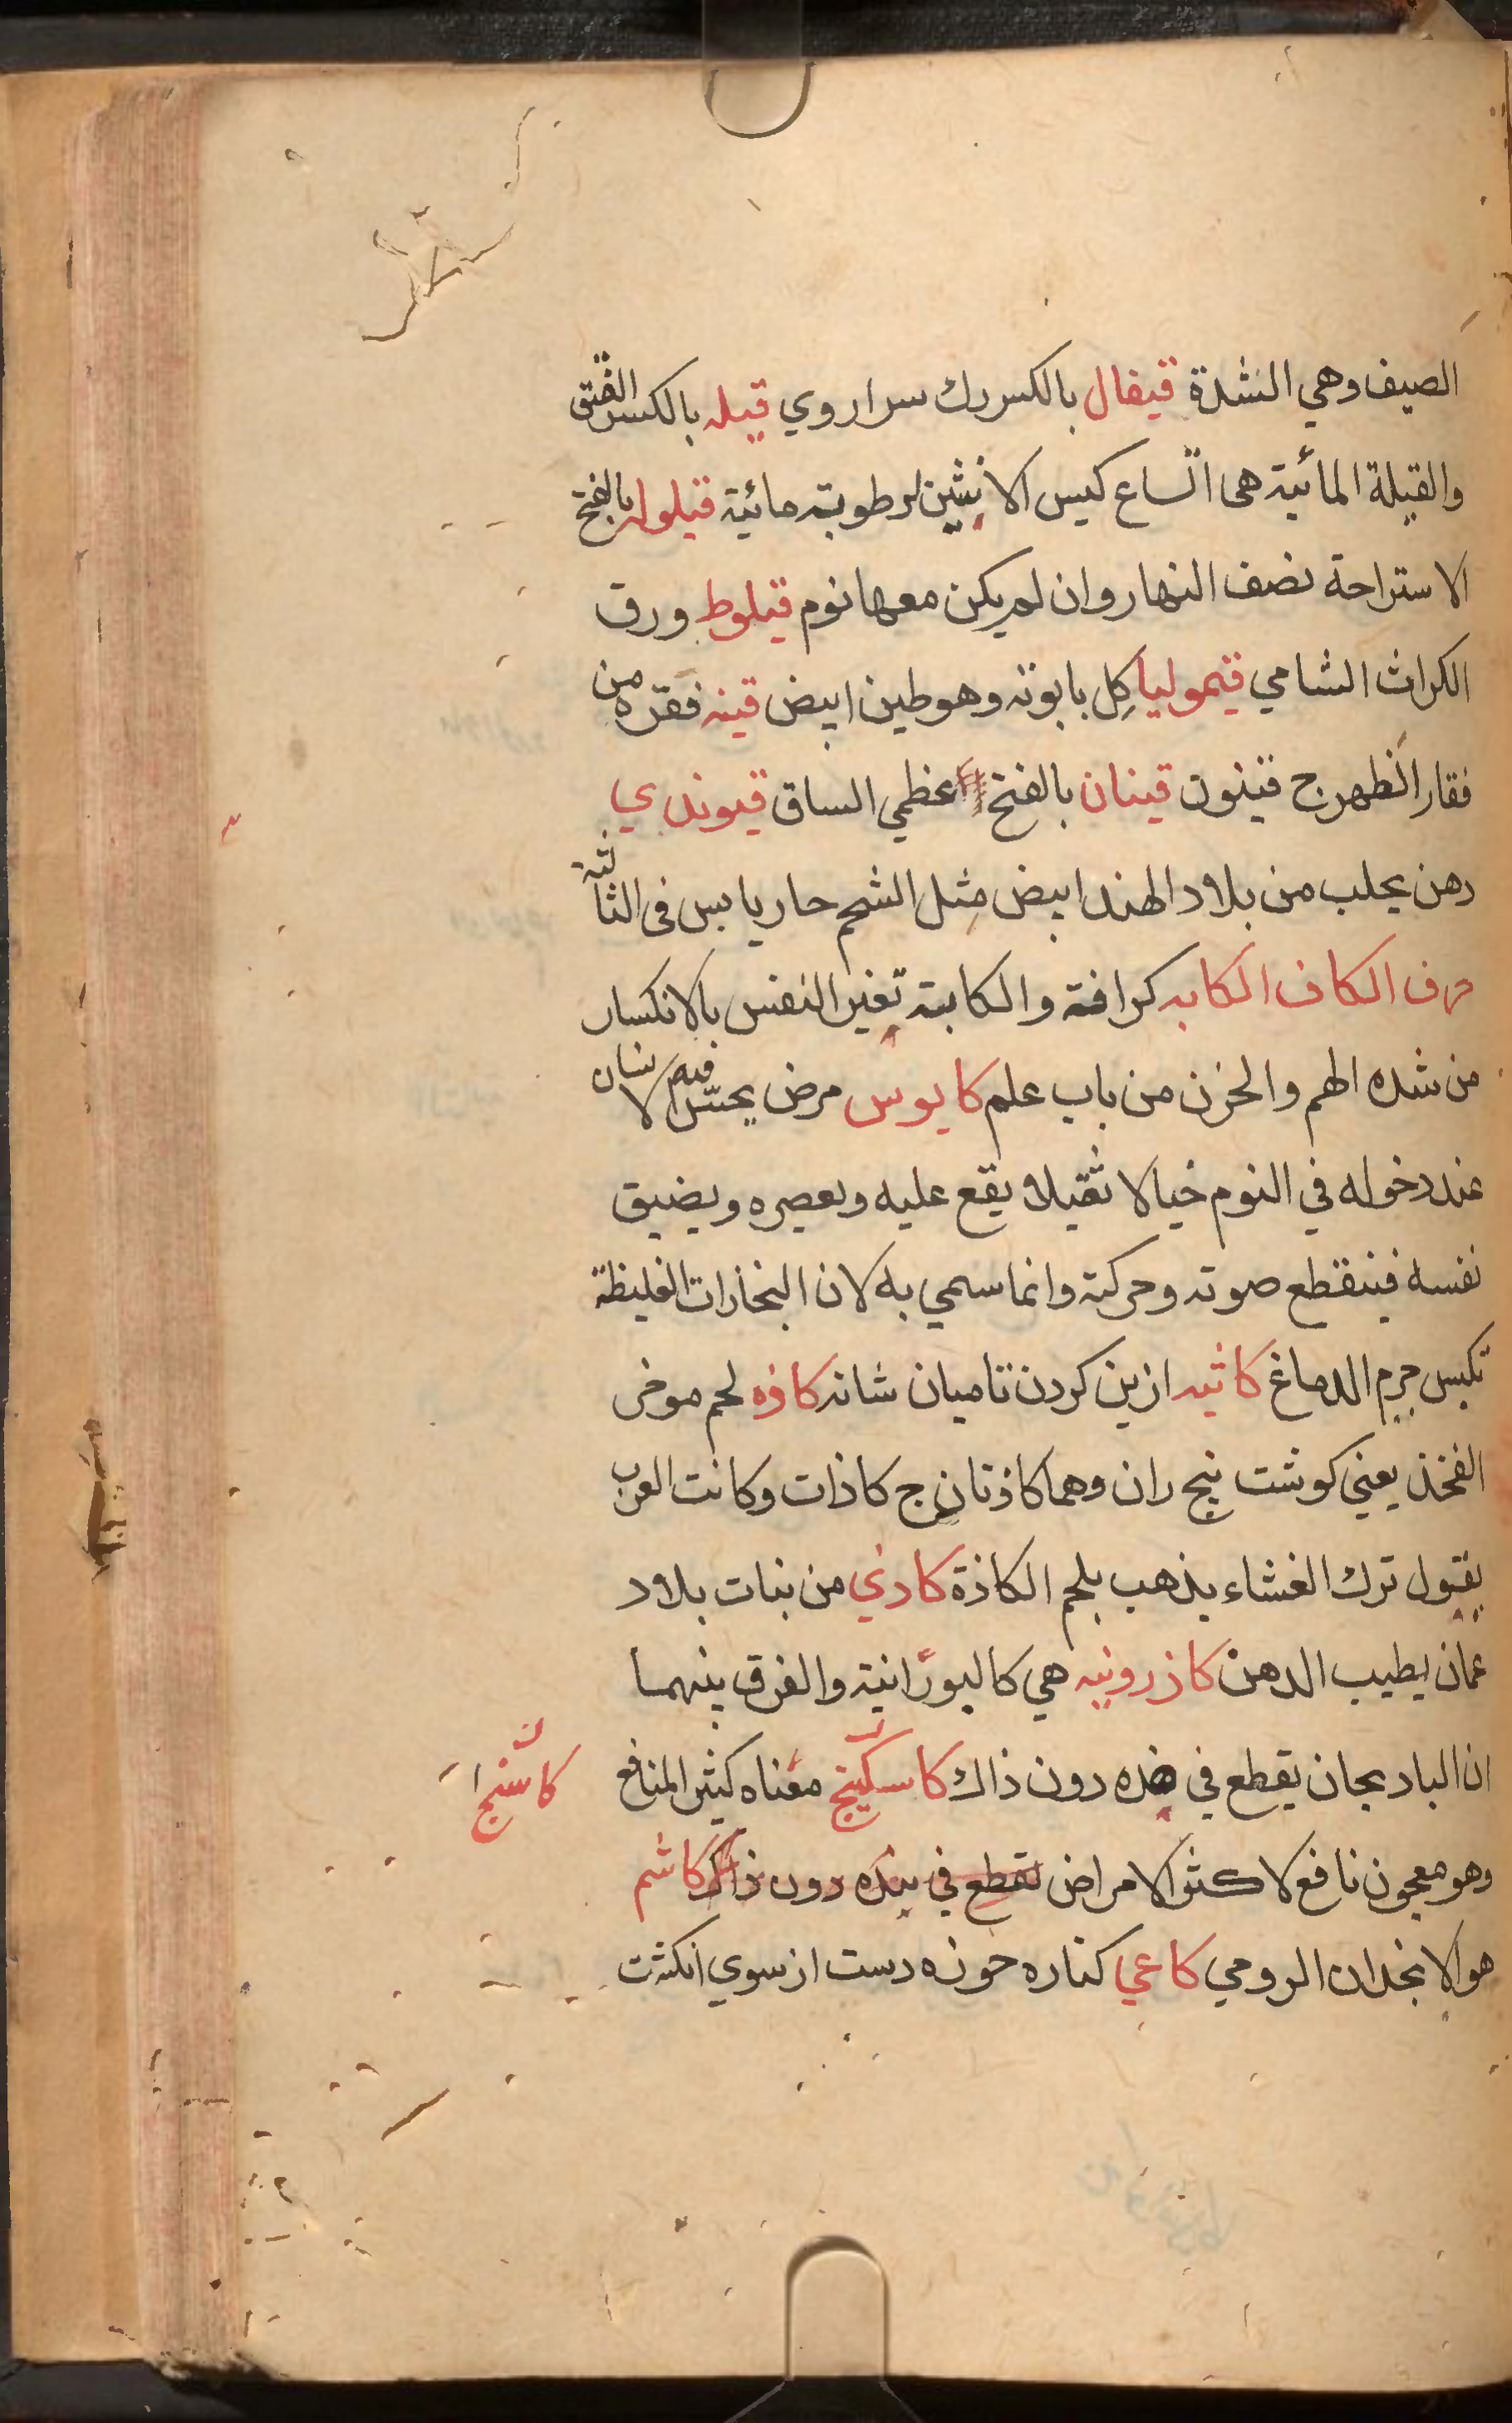 الصيف وهي الشدة قيفال بالكسر رك سراروي قيله بالكسر الفتق
والقيلة المائية هى اتساع كيس الانثيين لرطوبة مائية قيلوله بالفتح
الاستراحة نصف النهار وان لم يكن معها نوم قيلوط ورق
الكراث الشامي قيموليا كِل بابونه وهو طين ابيض قينه فقره من
فقار الظهر ج قينون قينان بالفتح عظمي الساق قيوندي
دهن يجلب من بلاد الهند ابيض مثل الشحم حار يابس فى الثالثة
حرف الكاف الكابه كرافة والكابة تغير النفس بالانكسار
من شده الهم والحزن من باب علم كابوس مرض يحسّ فيه الانسان
عند دخوله في النوم خيالا ثقيلا يقع عليه ويعصره ويضيق
نفسه فينقطع صوته وحركته وانما سمي به لان البخارات الغليظة
تكبس جرم الدماغ كاثبه ازين كردن تا ميان شانه كاذه لحم موخر
الفخذ يعني كوشت بيخ ران وهما كاذتان ج كاذات وكانت العرب
يقول ترك الغشاء يذهب بلحم الكاذة كاذي من نبات بلاد
عمان يطيب الدهن كازرونيه هي كالبورانية والفرق بينهما
ان البادنجان يقطع في هذه دون ذاك كاسكبينج معناه كثير المنافع
وهو معجون نافع لاكثر الامراض تقطع في هذه دون ذاك كاشم
هو الانجدان الرومي كاعي كناره حوزه دست از سوي انكشت